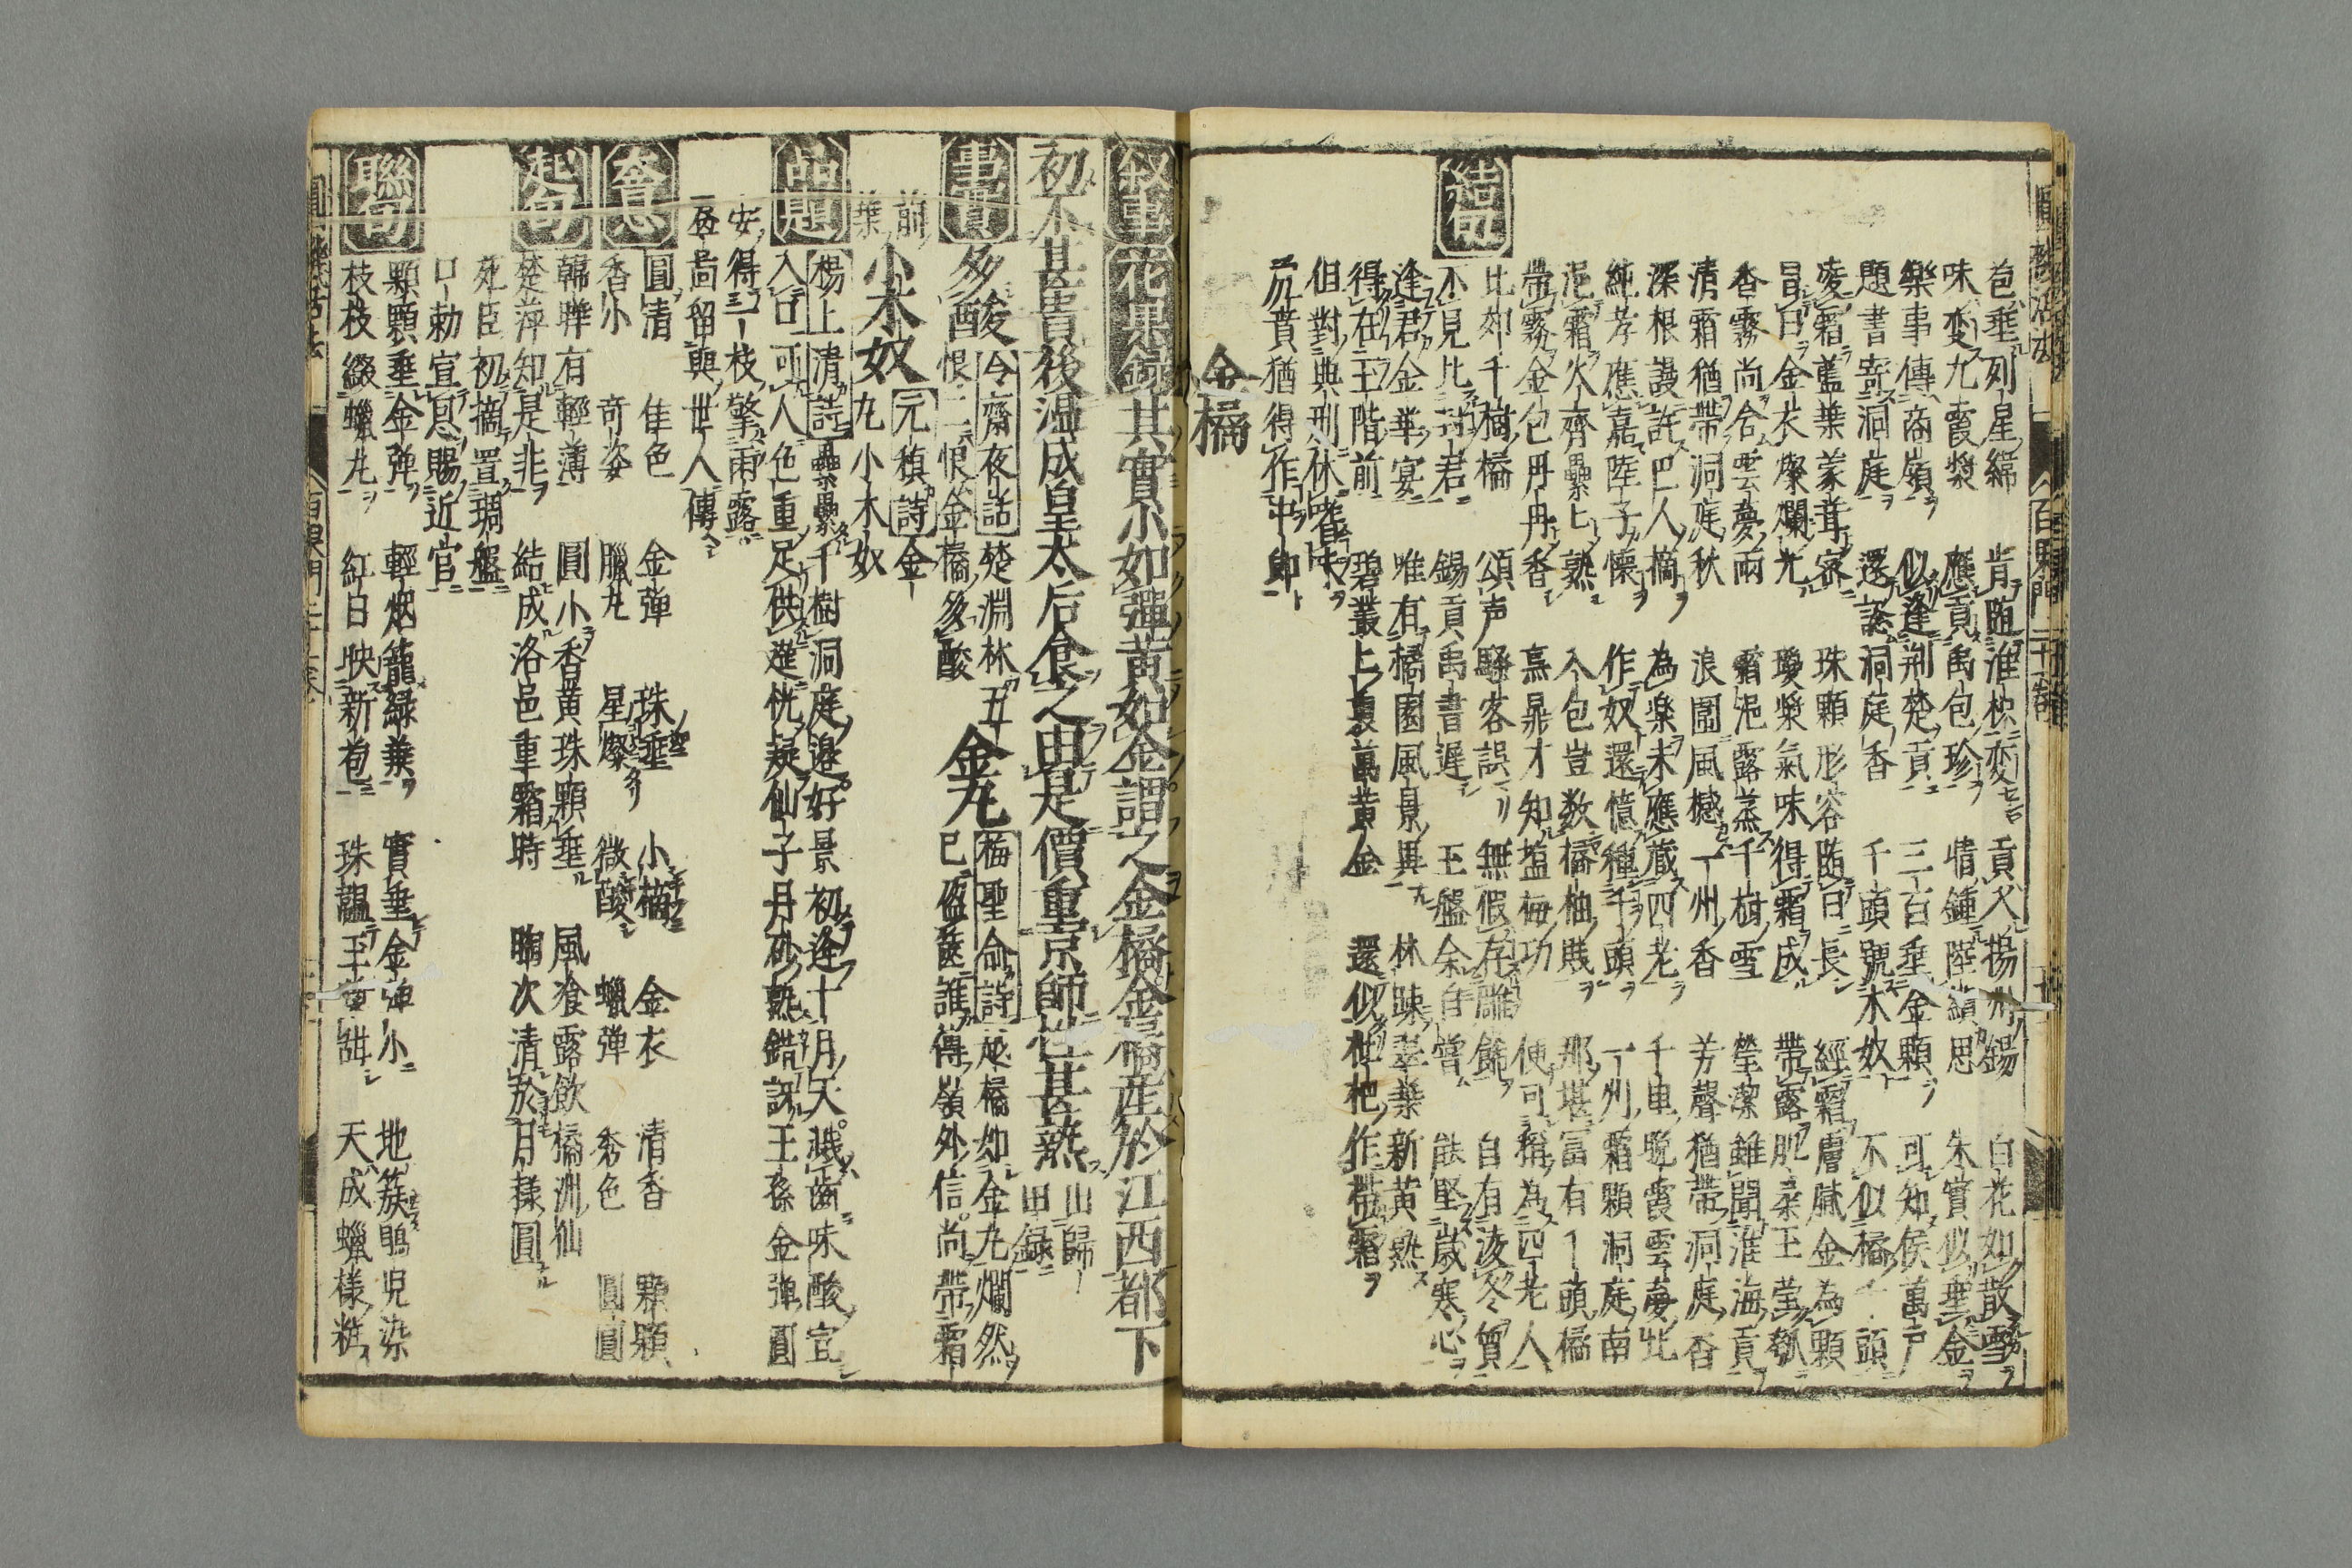 苞垂列星綿 肯隨淮枳変 貢入揚州錫 白花如散雪
味変九霞漿 應貢禹包珍 情鍾陸績思 朱實似垂金
樂事傳商嶺 似逢荆楚貢 三百垂金顆 可知侯萬戸
題書寄洞庭 還認洞庭香 千頭號木奴 不似橘千頭
凌霜蓋葉蒙茸密 珠顆形容隨日長 經霜膚膩金為顆
冒日金衣燦爛光 瓊漿氣味得霜成 帶露肥柔玉瑩瓠
香霧尚含雲夢雨 霜浥露蒸千樹雪 瑩潔雖聞淮海貢
清霜猶帶洞庭秋 浪圍風撼一州香 芳聲猶帶洞庭香
深根謾許巴人摘 為楽未應蔵四老 千車晚霞雲夢北
純孝應嘉陸子懷 作奴還憶種千頭 一州霜顆洞庭南
浥霜火齊纍纍熟 入包豈数橘柚賤 那堪冨有千頭橘
帶霧金包冉冉香 烹鼎才知塩梅功 便可稱為四老人
結句
比如千樹橘 頌声騒客誤 無假存雕飾 自有凌冬質
不見比封君 錫貢禹書遲 玉盤余自嘗 能堅歳寒心
逢君金華宴 唯有橘園風景異
得在玉階前 林踈翠葉新黄熟
但對典刑休啗味 碧叢上裛萬黄金
勿貰猶得作中卿 還似枇杷作帶霜
金橘
叙事 花果録 其實小如彈黄如金謂之金橘金橘產於江西都下
初不甚貴後温成皇太后食之由是價重京師性甚熱 歸田録
事實 多酸 冷齋夜話 楚淵林五恨二恨金橘多酸 金丸 梅聖俞詩 越橘如金丸爛然已盈筐誰得嶺外信尚帶霜
前葉 小木奴 元稹詩 金丸小木奴
品題 楊上清詩 纍纍千樹洞庭邉好景初逢十月天濺齒味酸宜
入口可人色重足供進恍疑仙子丹砂熟錯訝王孫金彈圓
安得三枝擎雨露
盃尚留與世人傳
大意 圓清 佳色 金彈 珠垂 小摘 金衣 清香 顆顆
香小 奇姿 臘丸 星燦 微酸 蠟弾 秀色 圓圓
起句 韓嘩有輕薄 圓小香黄珠顆垂 風飡露飲橘洲仙
楚萍知是非 結成洛邑重霜時 胸次清於月様圓
死臣初摘置琱盤
口勅宣恩賜近官
聯句 顆顆垂金弾 輕烟籠緑葉 實垂金弾小 地簇鵑児染
枝枝綴蠟丸 紅日映新苞 珠韞玉漿甜 天成蠟様粧
圓機活法 百果門二十巻